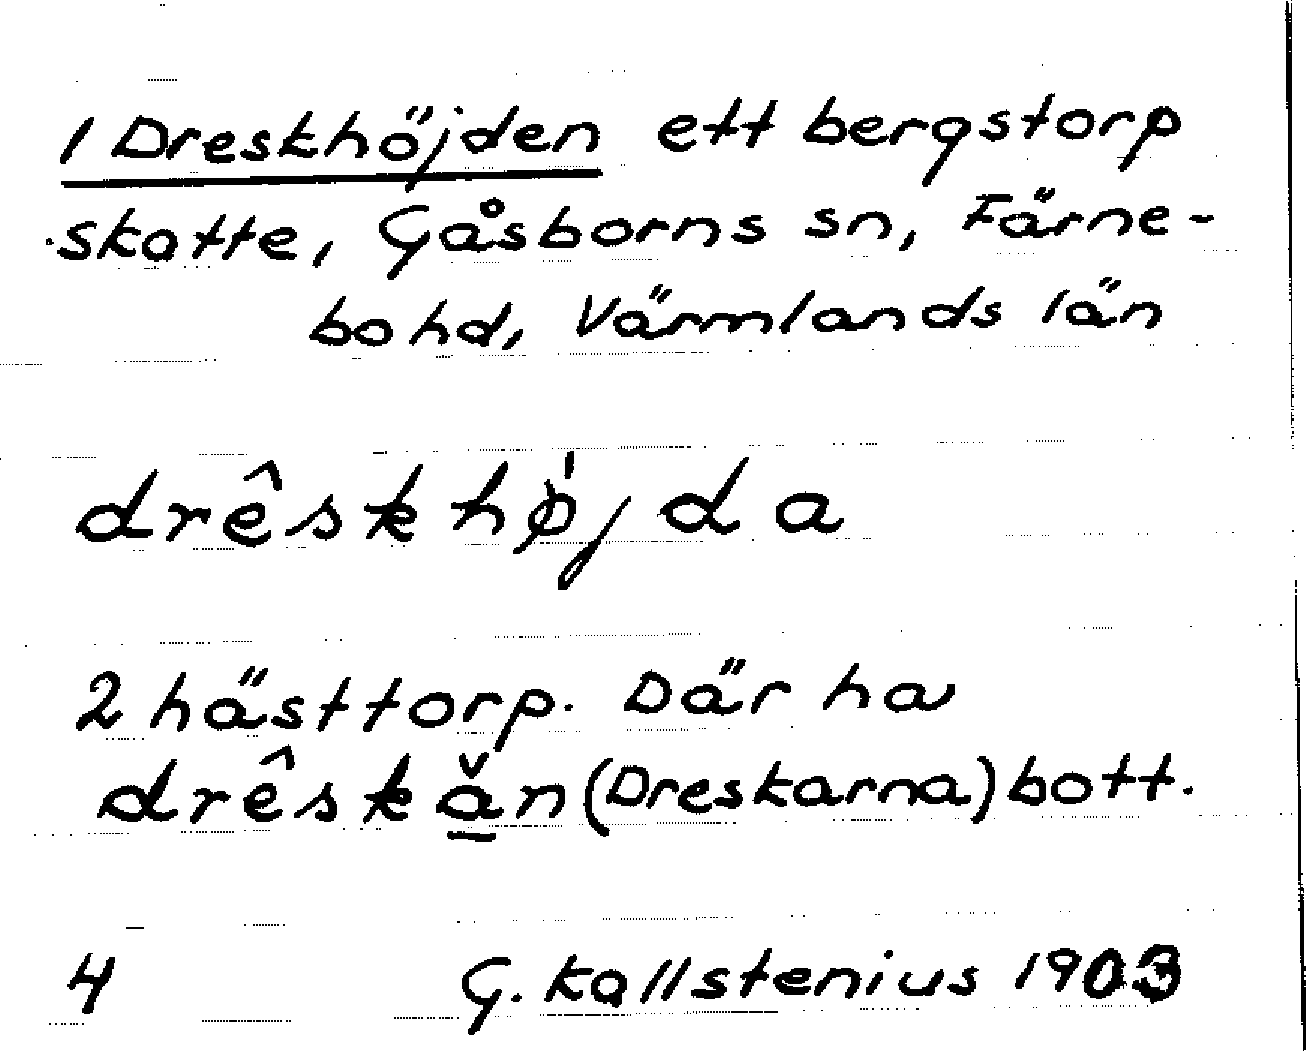 1 Dreskhöjden ett bergstorp
skatte, Gåsborns sn, Färne-
bohd, Värmlands län
drêskhø̍jda
2 hästtorp. Där ha
drêskǎ̲n (Dreskarna) bott.
4 G. Kallstenius 1903